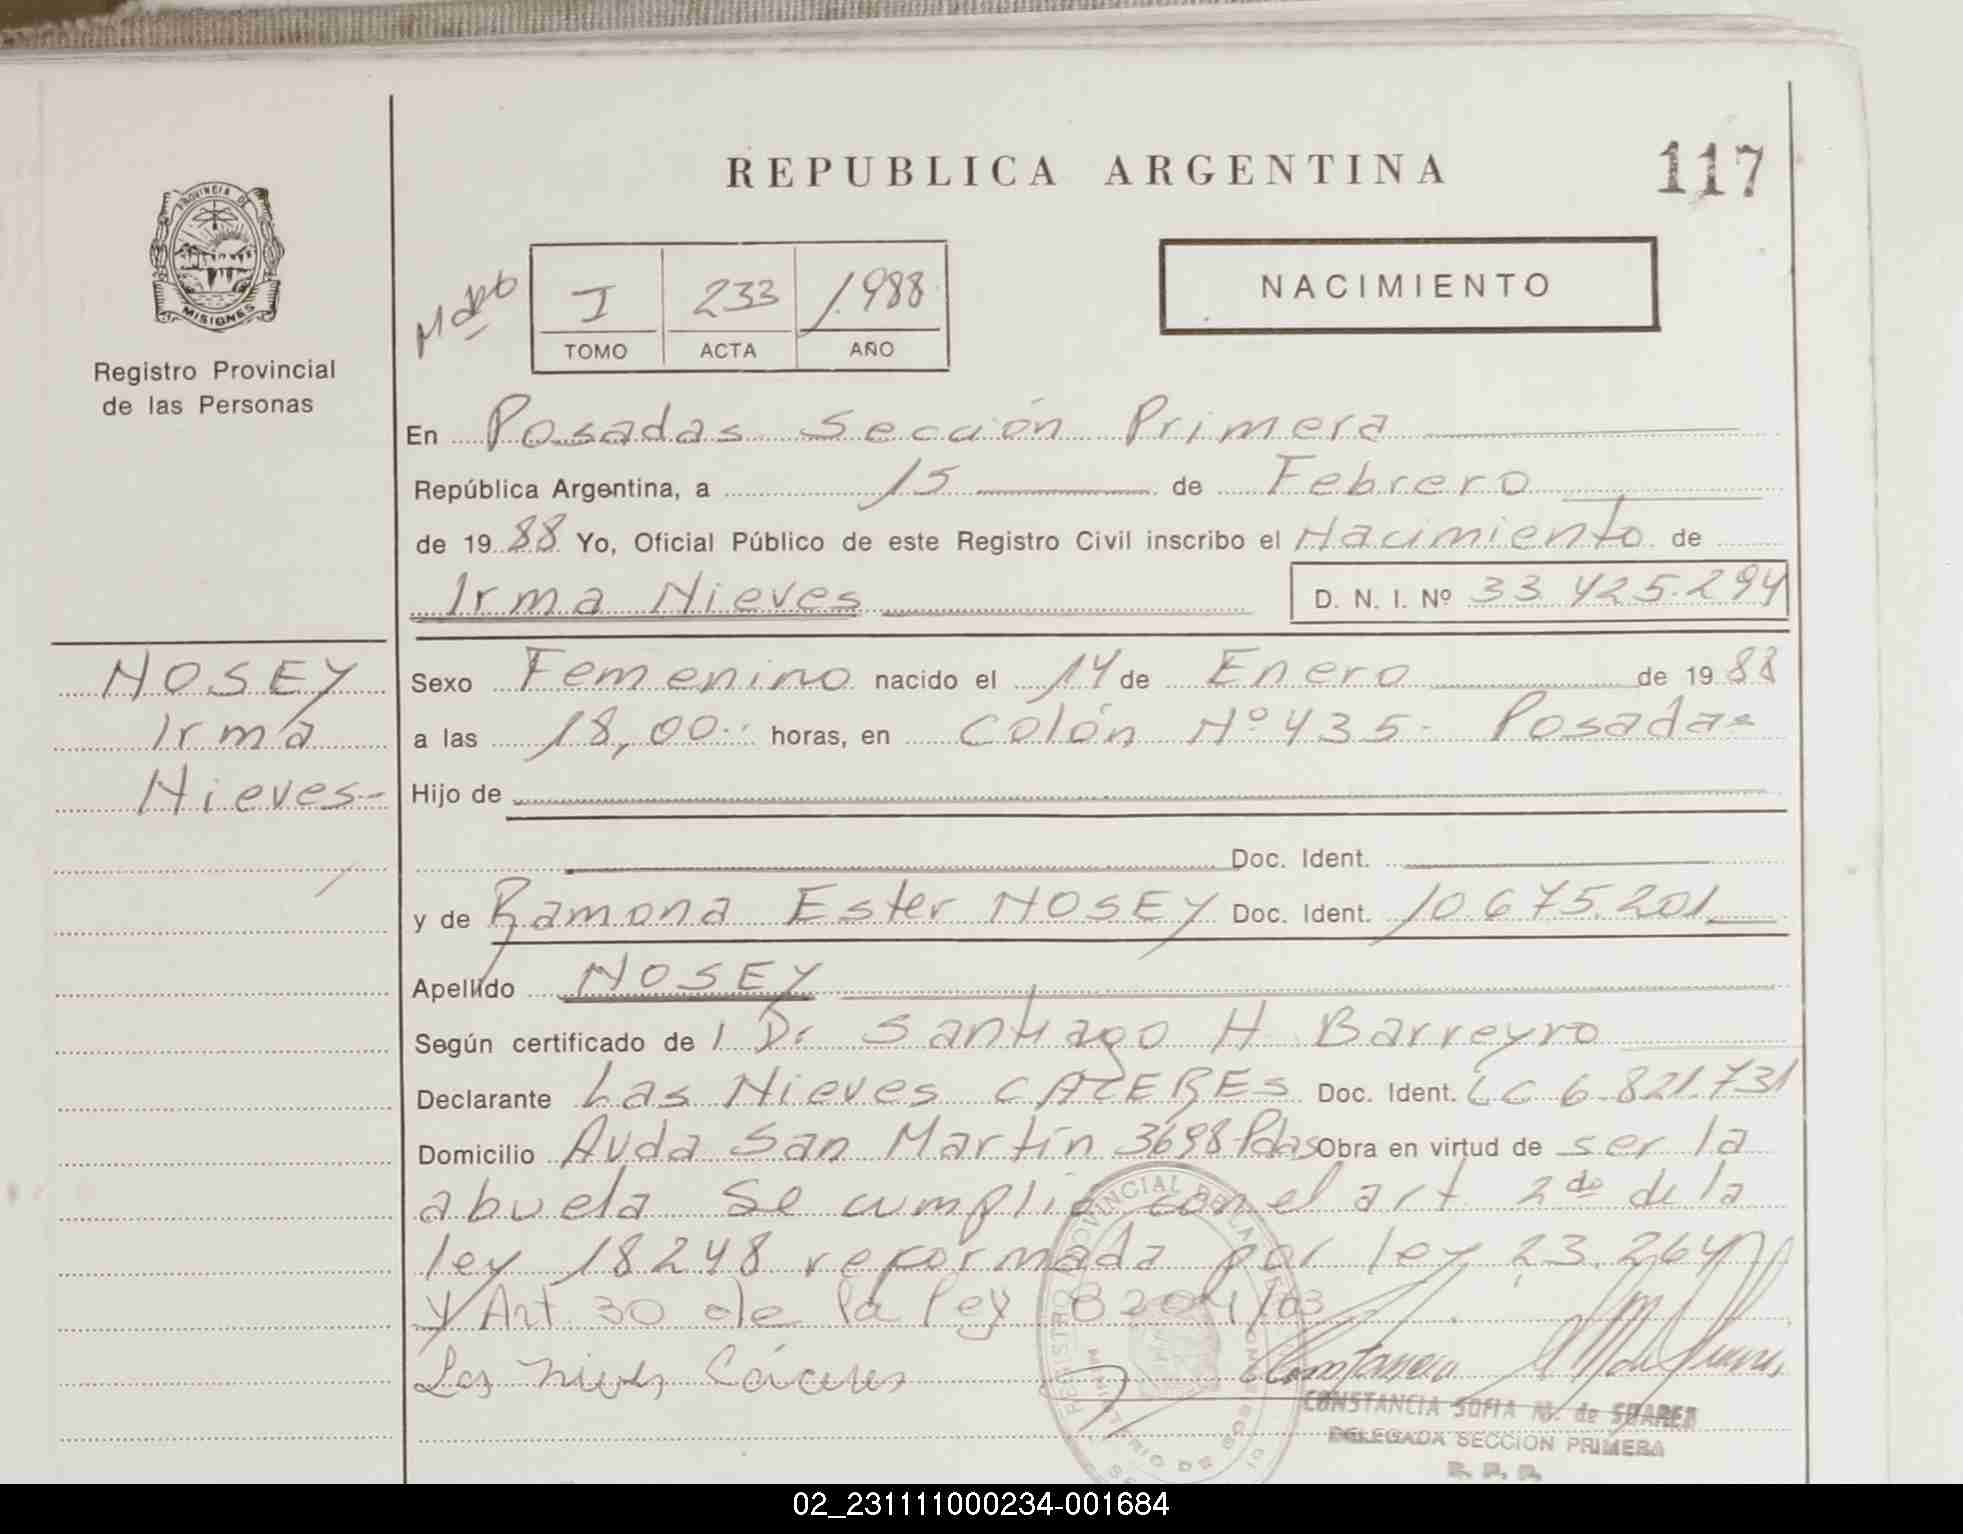 REPUBLICA ARGENTINA
117
PROVINCIA DE
MISIONES
Registro Provincial
de las Personas
I 233 1.988
TOMO ACTA AÑO
NACIMIENTO
En Posadas Sección Primera
República Argentina, a 15 de Febrero
de 1988 Yo, Oficial Público de este Registro Civil inscribo el Nacimiento de
Irma Nieves D. N. I. Nº 33.425.294
NOSEY
Irma
Nieves-
Sexo Femenino nacido el 14 de Enero de 1988
a las 18,00 horas, en Colón Nº 435- Posadas
Hijo de
Doc. Ident.
y de Ramona Ester NOSEY Doc. Ident. 10.675.201
Apellido NOSEY
Según certificado de l Dr Santiago H Barreyro
Declarante Las Nieves CACERES Doc. Ident. LC 6.821.731
Domicilio Avda San Martín 3698 Pdas Obra en virtud de ser la
abuela Se cumplió con el art. 2do de la
ley 18248 reformada por ley 23.264
y Art 30 de la ley
Las Nieves Cáceres
CONSTANCIA SOFIA M. de SUAREZ
DELEGADA SECCION PRIMERA
R. P. P.
02_231111000234-001684